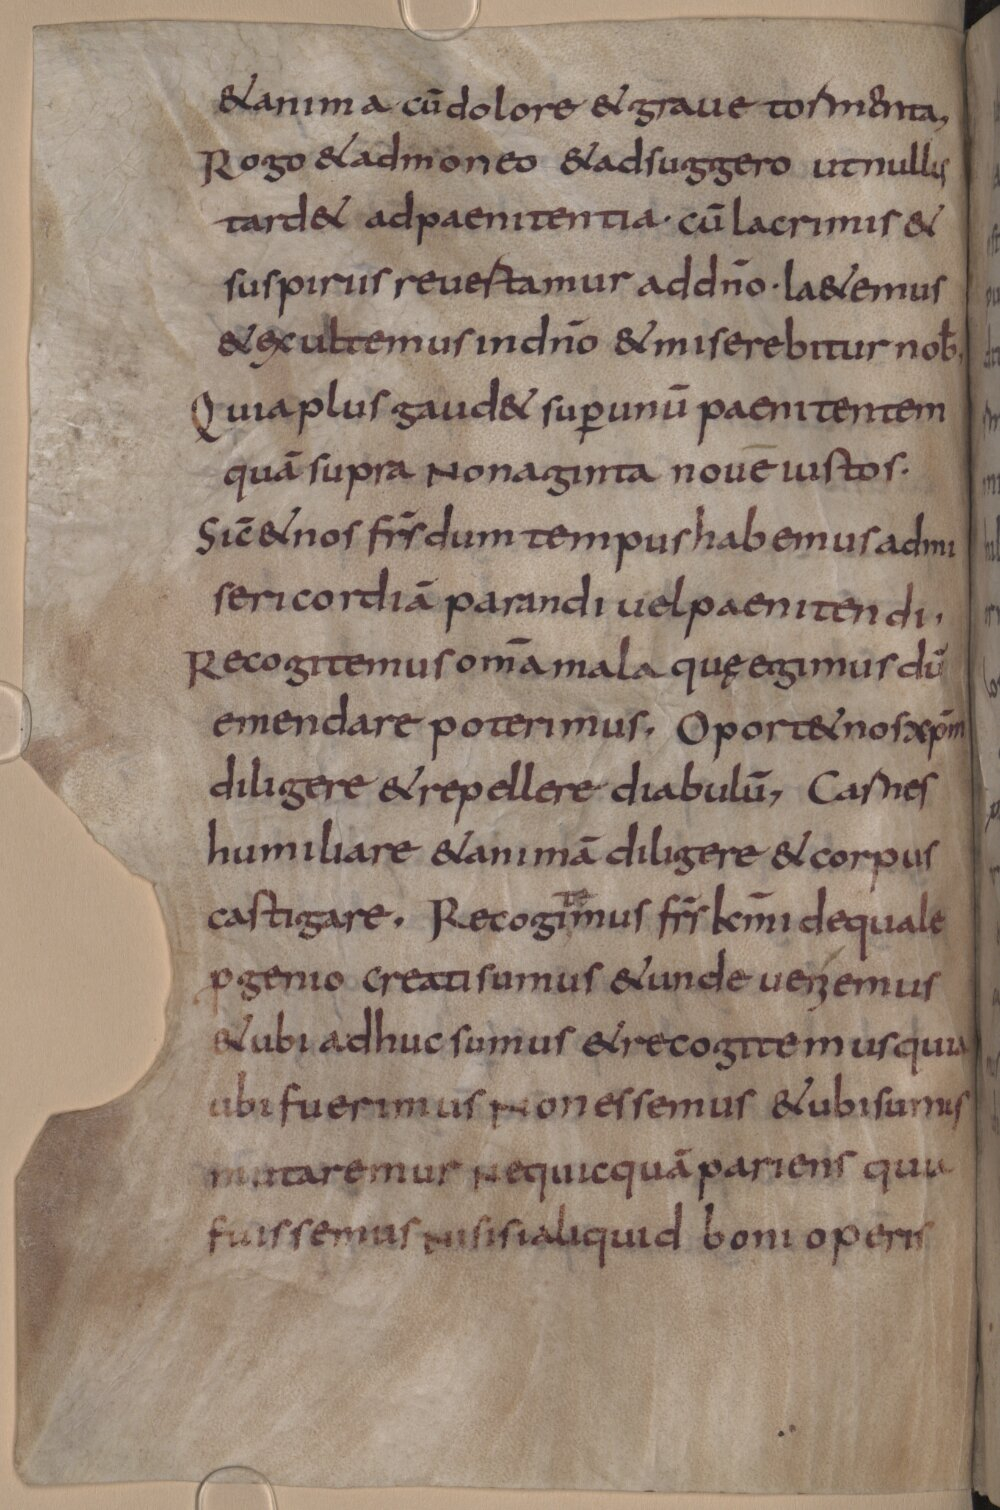 &anima cū dolore & graue tormenta,
Rogo & admoneo & adsuggero ut nullus
tard& ad paenitentia · cū lacrimis &
suspiriis reuertamur ad dn̄o · la&emus
& excultemus in dn̄o & miserebitur nob̄.
Quia plus gaud& sup̱ unū paenitentem
quā supra nonaginta nouē iustos ·
Sic̄ & nos fr̄s dum tempus habemus ad mi
sericordiā parandi uel paenitendi ,
Recogitemus om̄a mala quę egimus dū
emendare poterimus . Oport& nos xp̄m
diligere & repellere diabulū, Carnes
humiliare & animā diligere & corpus
castigare . Recogitemus fr̄s kr̄mi de quale
p̱genio creati sumus & unde uenemus
& ubi adhuc sumus & recogitemus quia
ubi fuerimus non essemus & ubi sumus
mutaremur nequicquā pariens quia
fuissemus nisi si aliquid boni operis